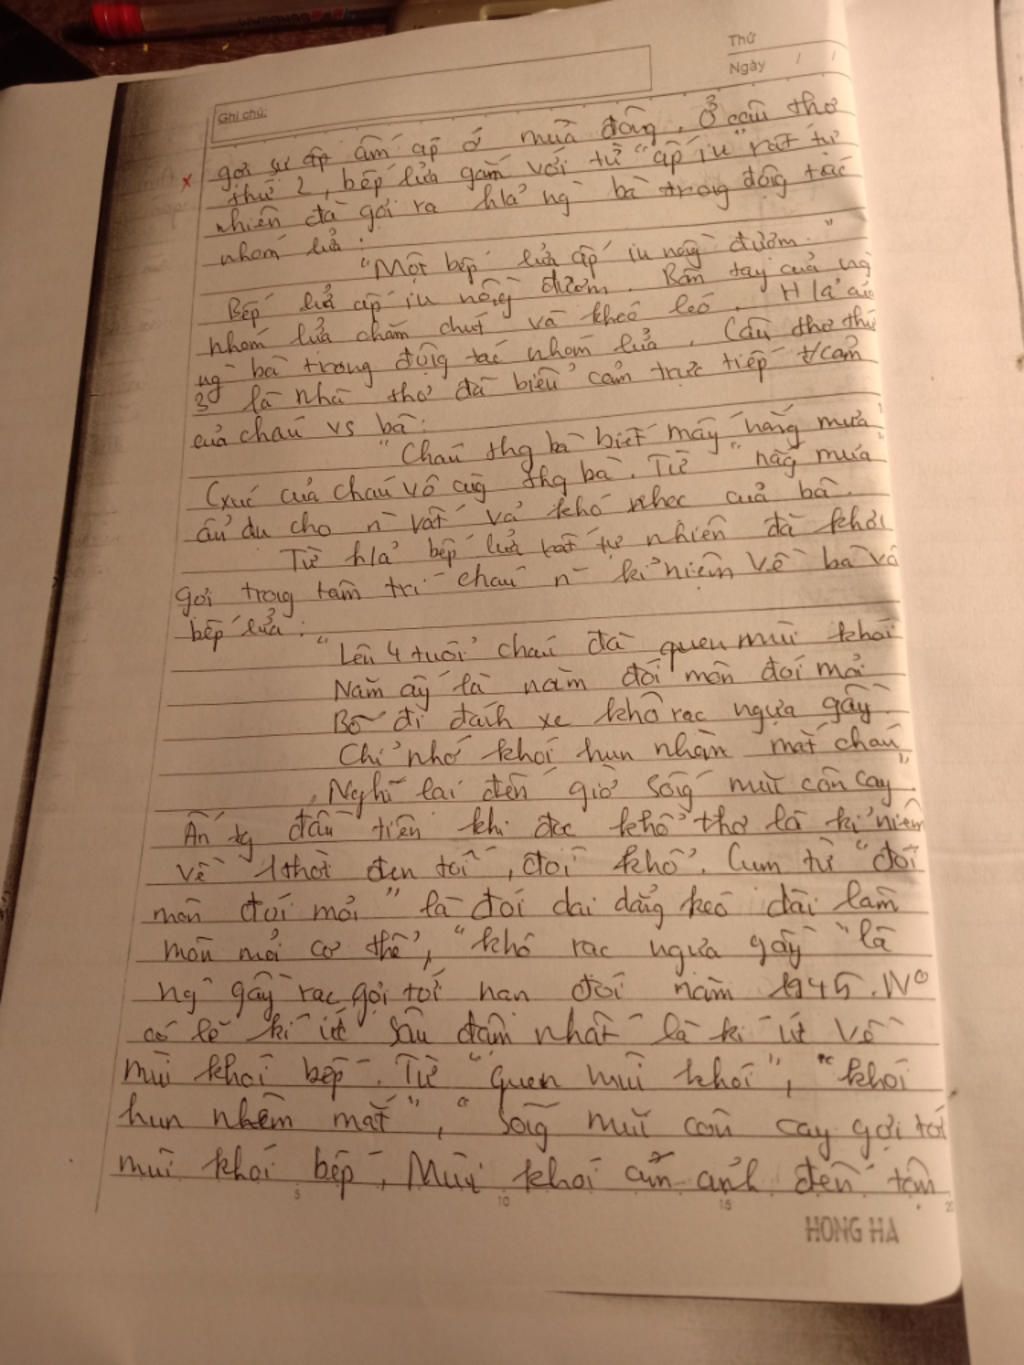 Thứ
Ngày / /
Ghi chú:
gợi sự ấp ấm áp ở mùa đông. Ở câu thơ
x thứ 2, bếp lửa gắn với từ "ấp iu" rất tự
nhiên đã gợi ra h/ả ng bà trong động tác
nhóm lửa:
"Một bếp lửa ấp iu nồng đượm."
Bếp lửa ấp iu nồng đượm. Bàn tay của ng
nhóm lửa chăm chút và khéo léo. H/ả
ng bà trong động tác nhóm lửa. Câu thơ thứ
3 là nhà thơ đã biểu cảm trực tiếp t/cảm
của cháu vs bà:
"Cháu thg bà biết mấy nắng mưa"
Cxúc của cháu vô cùg thg bà. Từ "nắg mưa
ẩn dụ cho n~ vất vả khó nhọc của bà.
Từ h/ả bếp lửa rất tự nhiên đã khơi
gợi trong tâm trí cháu n~ kỉ niệm về bà và
bếp lửa:
"Lên 4 tuổi cháu đã quen mùi khói
Năm ấy là năm đói mòn đói mỏi
Bố đi đánh xe khô rạc ngựa gầy
Chỉ nhớ khói hun nhèm mắt cháu
Nghĩ lại đến giờ sống mũi còn cay"
Ấn tg đầu tiên khi đọc khổ thơ là kỉ niệm
về 1 thời đen tối, đói khổ. Cụm từ "đói
mòn đói mỏi" là đói dai dẳng kéo dài làm
mòn mỏi cơ thể, "khô rạc ngựa gầy" là
ng gầy rạc gợi tới nạn đói năm 1945. N°
có lẽ kí ức sâu đậm nhất là kí ức về
mùi khói bếp. Từ "quen mùi khói", "khói
hun nhèm mắt", "sống mũi còn cay gợi tới
mùi khói bếp. Mùi khói ám ảnh đến tâm
5 10 15 20
HONG HA